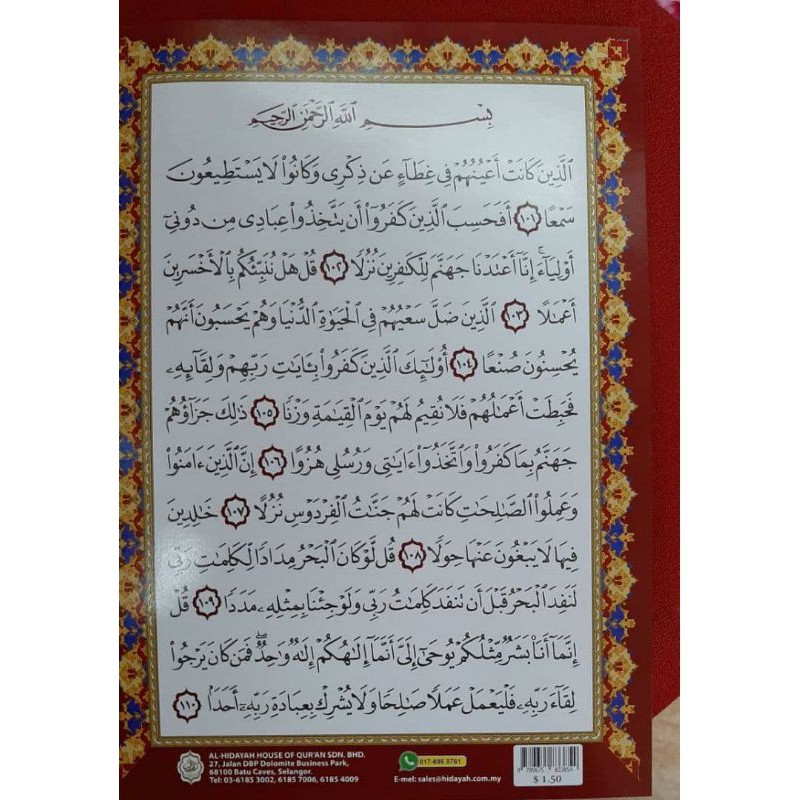 بِسْمِ اللَّهِ الرَّحْمَٰنِ الرَّحِيمِ
الَّذِينَ كَانَتْ أَعْيُنُهُمْ فِي غِطَآءٍ عَن ذِكْرِي وَكَانُوا۟ لَا يَسْتَطِيعُونَ
سَمْعًا ١٠١ أَفَحَسِبَ الَّذِينَ كَفَرُوٓا۟ أَن يَتَّخِذُوا۟ عِبَادِي مِن دُونِيٓ
أَوْلِيَآءَ ۚ إِنَّآ أَعْتَدْنَا جَهَنَّمَ لِلْكَٰفِرِينَ نُزُلًا ١٠٢ قُلْ هَلْ نُنَبِّئُكُم بِالْأَخْسَرِينَ
أَعْمَٰلًا ١٠٣ الَّذِينَ ضَلَّ سَعْيُهُمْ فِي الْحَيَوٰةِ الدُّنْيَا وَهُمْ يَحْسَبُونَ أَنَّهُمْ
يُحْسِنُونَ صُنْعًا ١٠٤ أُو۟لَٰٓئِكَ الَّذِينَ كَفَرُوا۟ بِـَٔايَٰتِ رَبِّهِمْ وَلِقَآئِهِۦ
فَحَبِطَتْ أَعْمَٰلُهُمْ فَلَا نُقِيمُ لَهُمْ يَوْمَ الْقِيَٰمَةِ وَزْنًا ١٠٥ ذَٰلِكَ جَزَآؤُهُمْ
جَهَنَّمُ بِمَا كَفَرُوا۟ وَاتَّخَذُوٓا۟ ءَايَٰتِي وَرُسُلِي هُزُوًا ١٠٦ إِنَّ الَّذِينَ ءَامَنُوا۟
وَعَمِلُوا۟ الصَّٰلِحَٰتِ كَانَتْ لَهُمْ جَنَّٰتُ الْفِرْدَوْسِ نُزُلًا ١٠٧ خَٰلِدِينَ
فِيهَا لَا يَبْغُونَ عَنْهَا حِوَلًا ١٠٨ قُل لَّوْ كَانَ الْبَحْرُ مِدَادًا لِّكَلِمَٰتِ رَبِّي
لَنَفِدَ الْبَحْرُ قَبْلَ أَن تَنفَدَ كَلِمَٰتُ رَبِّي وَلَوْ جِئْنَا بِمِثْلِهِۦ مَدَدًا ١٠٩ قُلْ
إِنَّمَآ أَنَا۠ بَشَرٌ مِّثْلُكُمْ يُوحَىٰٓ إِلَيَّ أَنَّمَآ إِلَٰهُكُمْ إِلَٰهٌ وَٰحِدٌ ۖ فَمَن كَانَ يَرْجُوا۟
لِقَآءَ رَبِّهِۦ فَلْيَعْمَلْ عَمَلًا صَٰلِحًا وَلَا يُشْرِكْ بِعِبَادَةِ رَبِّهِۦٓ أَحَدًۢا ١١٠
AL-HIDAYAH HOUSE OF QUR'AN SDN. BHD.
27, Jalan DBP Dolomite Business Park,
68100 Batu Caves, Selangor.
Tel: 03-6185 3002, 6185 7006, 6185 4009
E-mel: sales@hidayah.com.my
$ 1.50